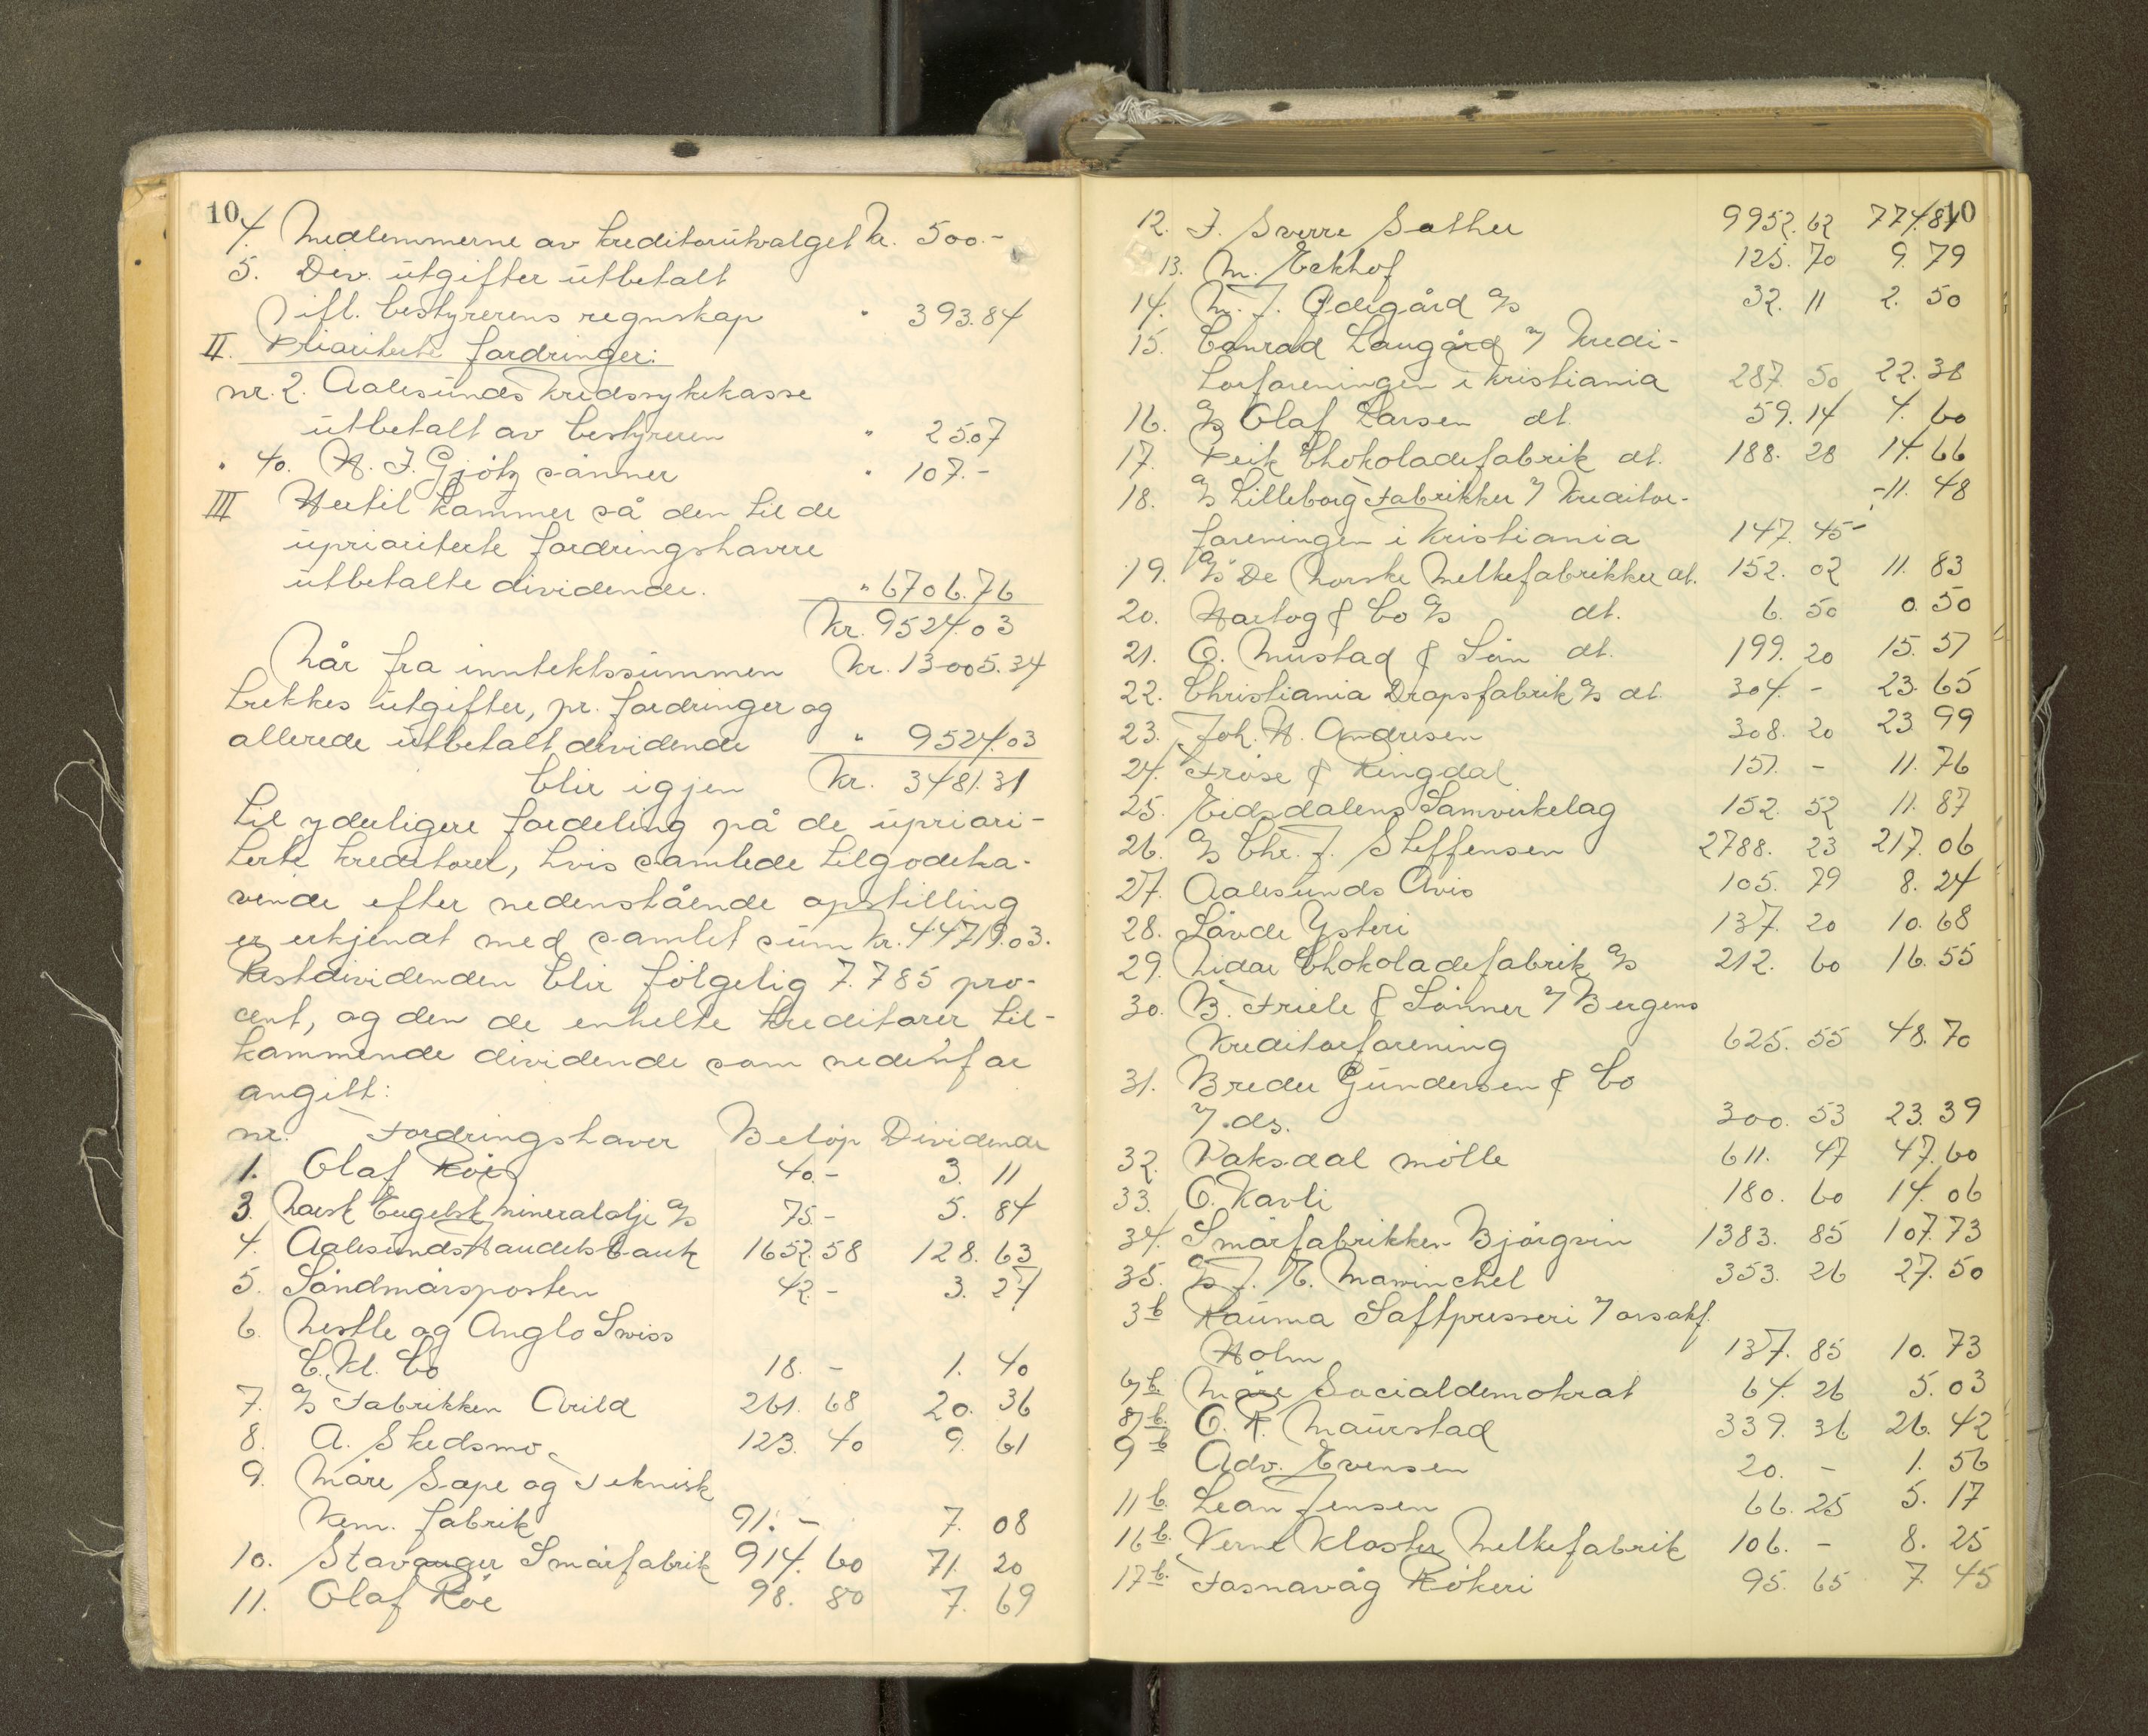 10
4. Medlemmerne av kreditorutvalget kr. 500.-
5. Div. utgifter utbetalt
ifl. bestyrerens regnskap " 393.84
II. Prioriterte fordringer:
nr. 2. Aalesunds Kredssykekasse
utbetalt av bestyreren " 25.07
" 40. H. J. Gjötz sönner " 107.-
III Hertil kommer så den til de
uprioriterte fordringshavere
utbetalte dividende. " 6706.76
Kr. 9524.03
Når fra inntektssummen Kr. 13005.34
trekkes utgifter, pr. fordringer og
allerede utbetalt dividende " 9524.03
blir igjen Kr. 3481.31
til yderligere fordeling på de upriori-
terte kreditorer, hvis samlede tilgodeha-
vende efter nedenstående opstilling
er erkjent med samlet sum kr. 44719.03.
Restdividenden blir fölgelig 7.785 pro-
cent, og den de enkelte kreditorer til-
kommende dividende som nedenfor
angitt:
nr. Fordringshaver Belöp Dividende
1. Olaf Röe 40.- 3. 11
3. Norsk Engelsk Mineralolje A/S 75.- 5. 84
4. Aalesunds Handelsbank 1652.58 128. 63
5. Söndmörsposten 42.- 3. 27
6. Nestle og Anglo Swiss
C. M. Co 18. - 1. 40
7. A/S Fabrikken Arild 261. 68 20. 36
8. A. Skedsmo 123. 40 9. 61
9. Möre Sæpe og Teknisk
Kem. fabrik 91. - 7. 08
10. Stavanger Smörfabrik 914. 60 71. 20
11. Olaf Röe 98. 80 7. 69
10
12. J. Sverre Sæther 9952. 62 774.81
13. M. Eckhof 125. 70 9. 79
14. M. J. Ödegård A/S 32. 11 2. 50
15. Conrad Langård v/ Kredi-
torforeningen i Kristiania 287. 50 22. 38
16. A/S Olaf Larsen dt. 59. 14 4. 60
17. Peik Chokoladefabrik dt. 188. 28 14. 66
18. A/S Lilleborg Fabrikker v/ Kreditor- -11. 48
foreningen i Kristiania 147. 45-
19. A/S De Norske Melkefabrikker dt. 152. 02 11. 83
20. Hartog & Co A/S dt. 6. 50 0. 50
21. O. Mustad & Sön dt. 199. 20 15. 51
22. Christiania Dropsfabrik A/S dt. 304. - 23. 65
23. Joh. H. Andresen 308. 20 23 99
24. Fröse & Ringdal 151. - 11. 76
25. Eidsdalens Samvirkelag 152. 52 11. 87
26. A/S Chr. J. Steffensen 2788. 23 217. 06
27. Aalesunds Avis 105. 79 8. 24
28. Lövde Ysteri 137. 20 10. 68
29. Nidar Chokoladefabrik A/S 212. 60 16. 55
30. B. Friele & Sönner v/ Bergens
Kreditorforening 625. 55 48. 70
31. Breder Gundersen & Co
v. ds. 300. 53 23. 39
32. Vaksdal mölle 611. 47 47. 60
33. O. Kavli 180. 60 14. 06
34. Smörfabrikken Björgvin 1383. 85 107. 73
35. A/S 353. 26 27. 50
3b Rauma Saftpresseri v/ orsakf.
Holm 137. 85 10. 73
6b. Möre Socialdemokrat 64. 26 5. 03
8b. O. R. Maurstad 339. 36 26. 42
9b Adv. Evensen 20. - 1. 56
11b. Leon Jensen 66. 25 5. 17
16b. Verne Kloster Melkefabrik 106. - 8. 25
17b. Fosnavåg Rökeri 95. 65 7. 45